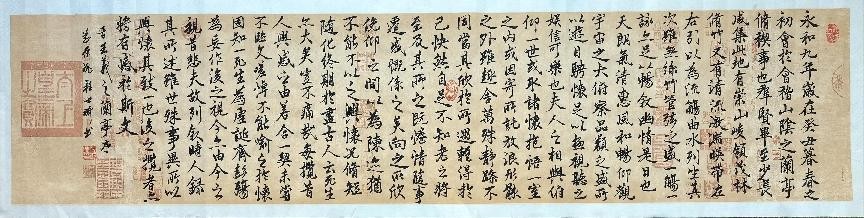 永和九年歲在癸丑暮春之
初會於會稽山陰之蘭亭
脩稧事也羣賢畢至少長
咸集此地有崇山峻領茂林
脩竹又有清流激湍暎帶左
右引以為流觴曲水列坐其
次雖無絲竹管弦之盛一觴一
詠亦足以暢敘幽情是日也
天朗氣清惠風和暢仰觀
宇宙之大俯察品類之盛所
以遊目騁懷足以極視聽之
娛信可樂也夫人之相與俯
仰一世或取諸懷抱悟言一室
之內或因寄所託放浪形骸
之外雖趣舍萬殊靜躁不
同當其欣於所遇蹔得於
己快然自足不知老之將
至及其所之既惓情隨事
遷感慨係之矣向之所欣
俛仰之間以為陳迹猶
不能不以之興懷況脩短
隨化終期於盡古人云死生
亦大矣豈不痛哉每攬昔
人興感之由若合一契未嘗
不臨文嗟悼不能喻之於懷
固知一死生為虛誕齊彭殤
為妄作後之視今亦由今之
視昔悲夫故列敘時人錄
其所述雖世殊事異所以
興懷其致一也後之攬者亦
將有感於斯文
晉王羲之蘭亭序